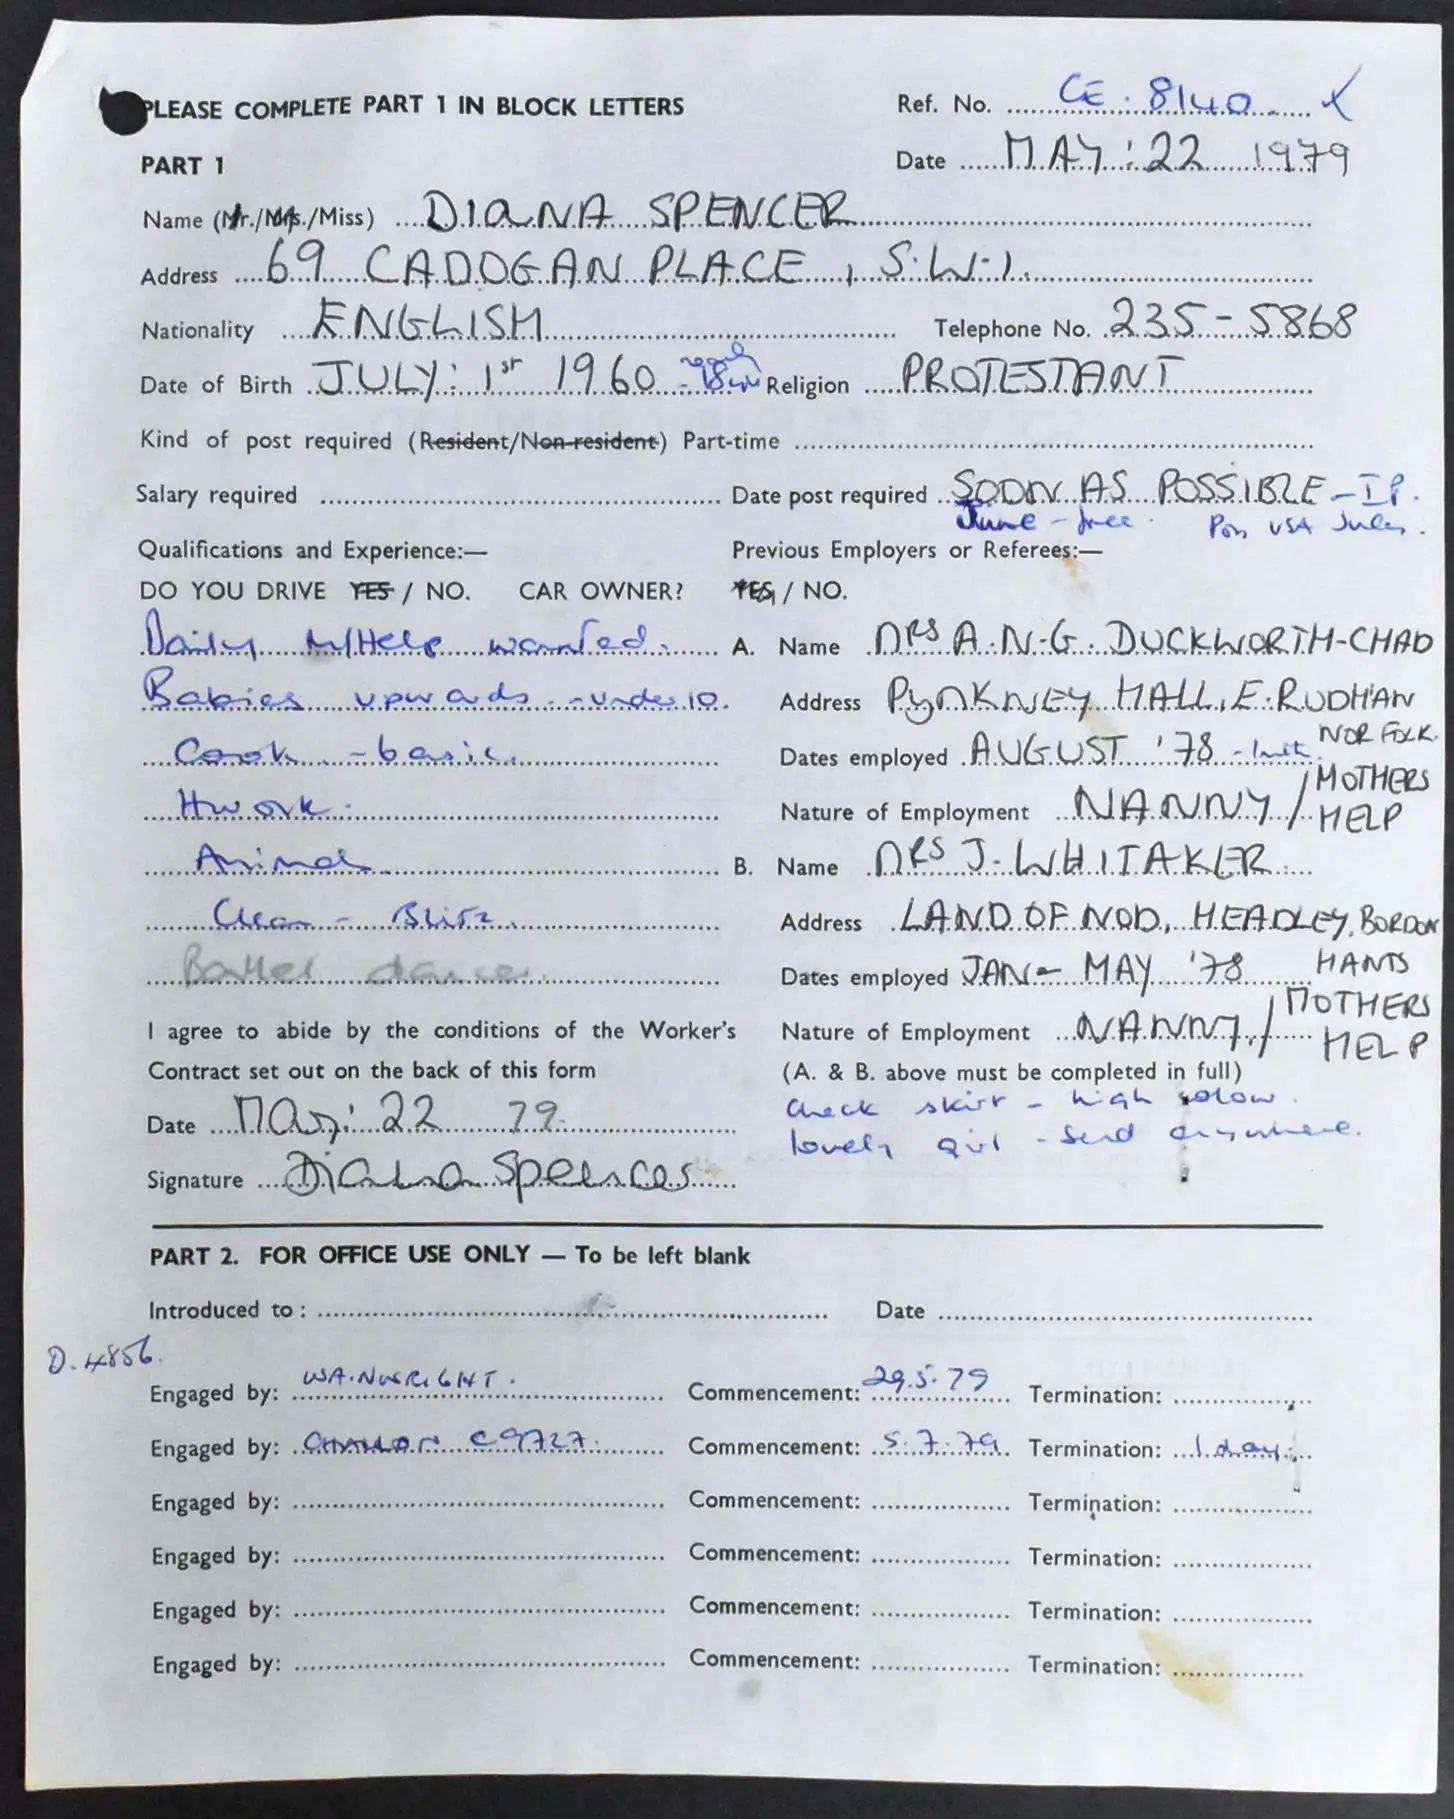 PLEASE COMPLETE PART 1 IN BLOCK LETTERS
Ref. No. CE. 8140
PART 1
Date MAY: 22 1979
Name (Mr./Mrs./Miss) DIANA SPENCER
Address 69 CADOGAN PLACE, S.W.1.
Nationality ENGLISH Telephone No. 235-5868
Date of Birth JULY: 1st 1960 - Religion PROTESTANT
Kind of post required (Resident/Non-resident) Part-time
Salary required Date post required SOON AS POSSIBLE -
June - free. Poss USA July.
Qualifications and Experience:— Previous Employers or Referees:—
DO YOU DRIVE YES / NO. CAR OWNER? YES / NO.
Daily M/Help wanted. A. Name MRS A.N.G. DUCKWORTH-CHAD
Babies upwards - under 10. Address PYNKNEY HALL, E. RUDHAM
NORFOLK.
Cook - basic. Dates employed AUGUST '78
Hwork. Nature of Employment NANNY / MOTHERS HELP
Animals B. Name MRS J. WHITAKER
Clean - Blitz. Address LAND OF NOD, HEADLEY, BORDON
HANTS
Ballet dancer. Dates employed JAN - MAY '78
I agree to abide by the conditions of the Worker's Nature of Employment NANNY / MOTHERS HELP
Contract set out on the back of this form (A. & B. above must be completed in full)
check skirt - high colour.
Date MAY: 22 79.
lovely girl - send anywhere.
Signature Diana Spencer
PART 2. FOR OFFICE USE ONLY — To be left blank
Introduced to: Date
D. 4856.
Engaged by: WAINWRIGHT. Commencement: 29.5.79 Termination:
Engaged by: CHALLON C9727. Commencement: 5.7.79 Termination: 1 day.
Engaged by: Commencement: Termination:
Engaged by: Commencement: Termination:
Engaged by: Commencement: Termination:
Engaged by: Commencement: Termination: